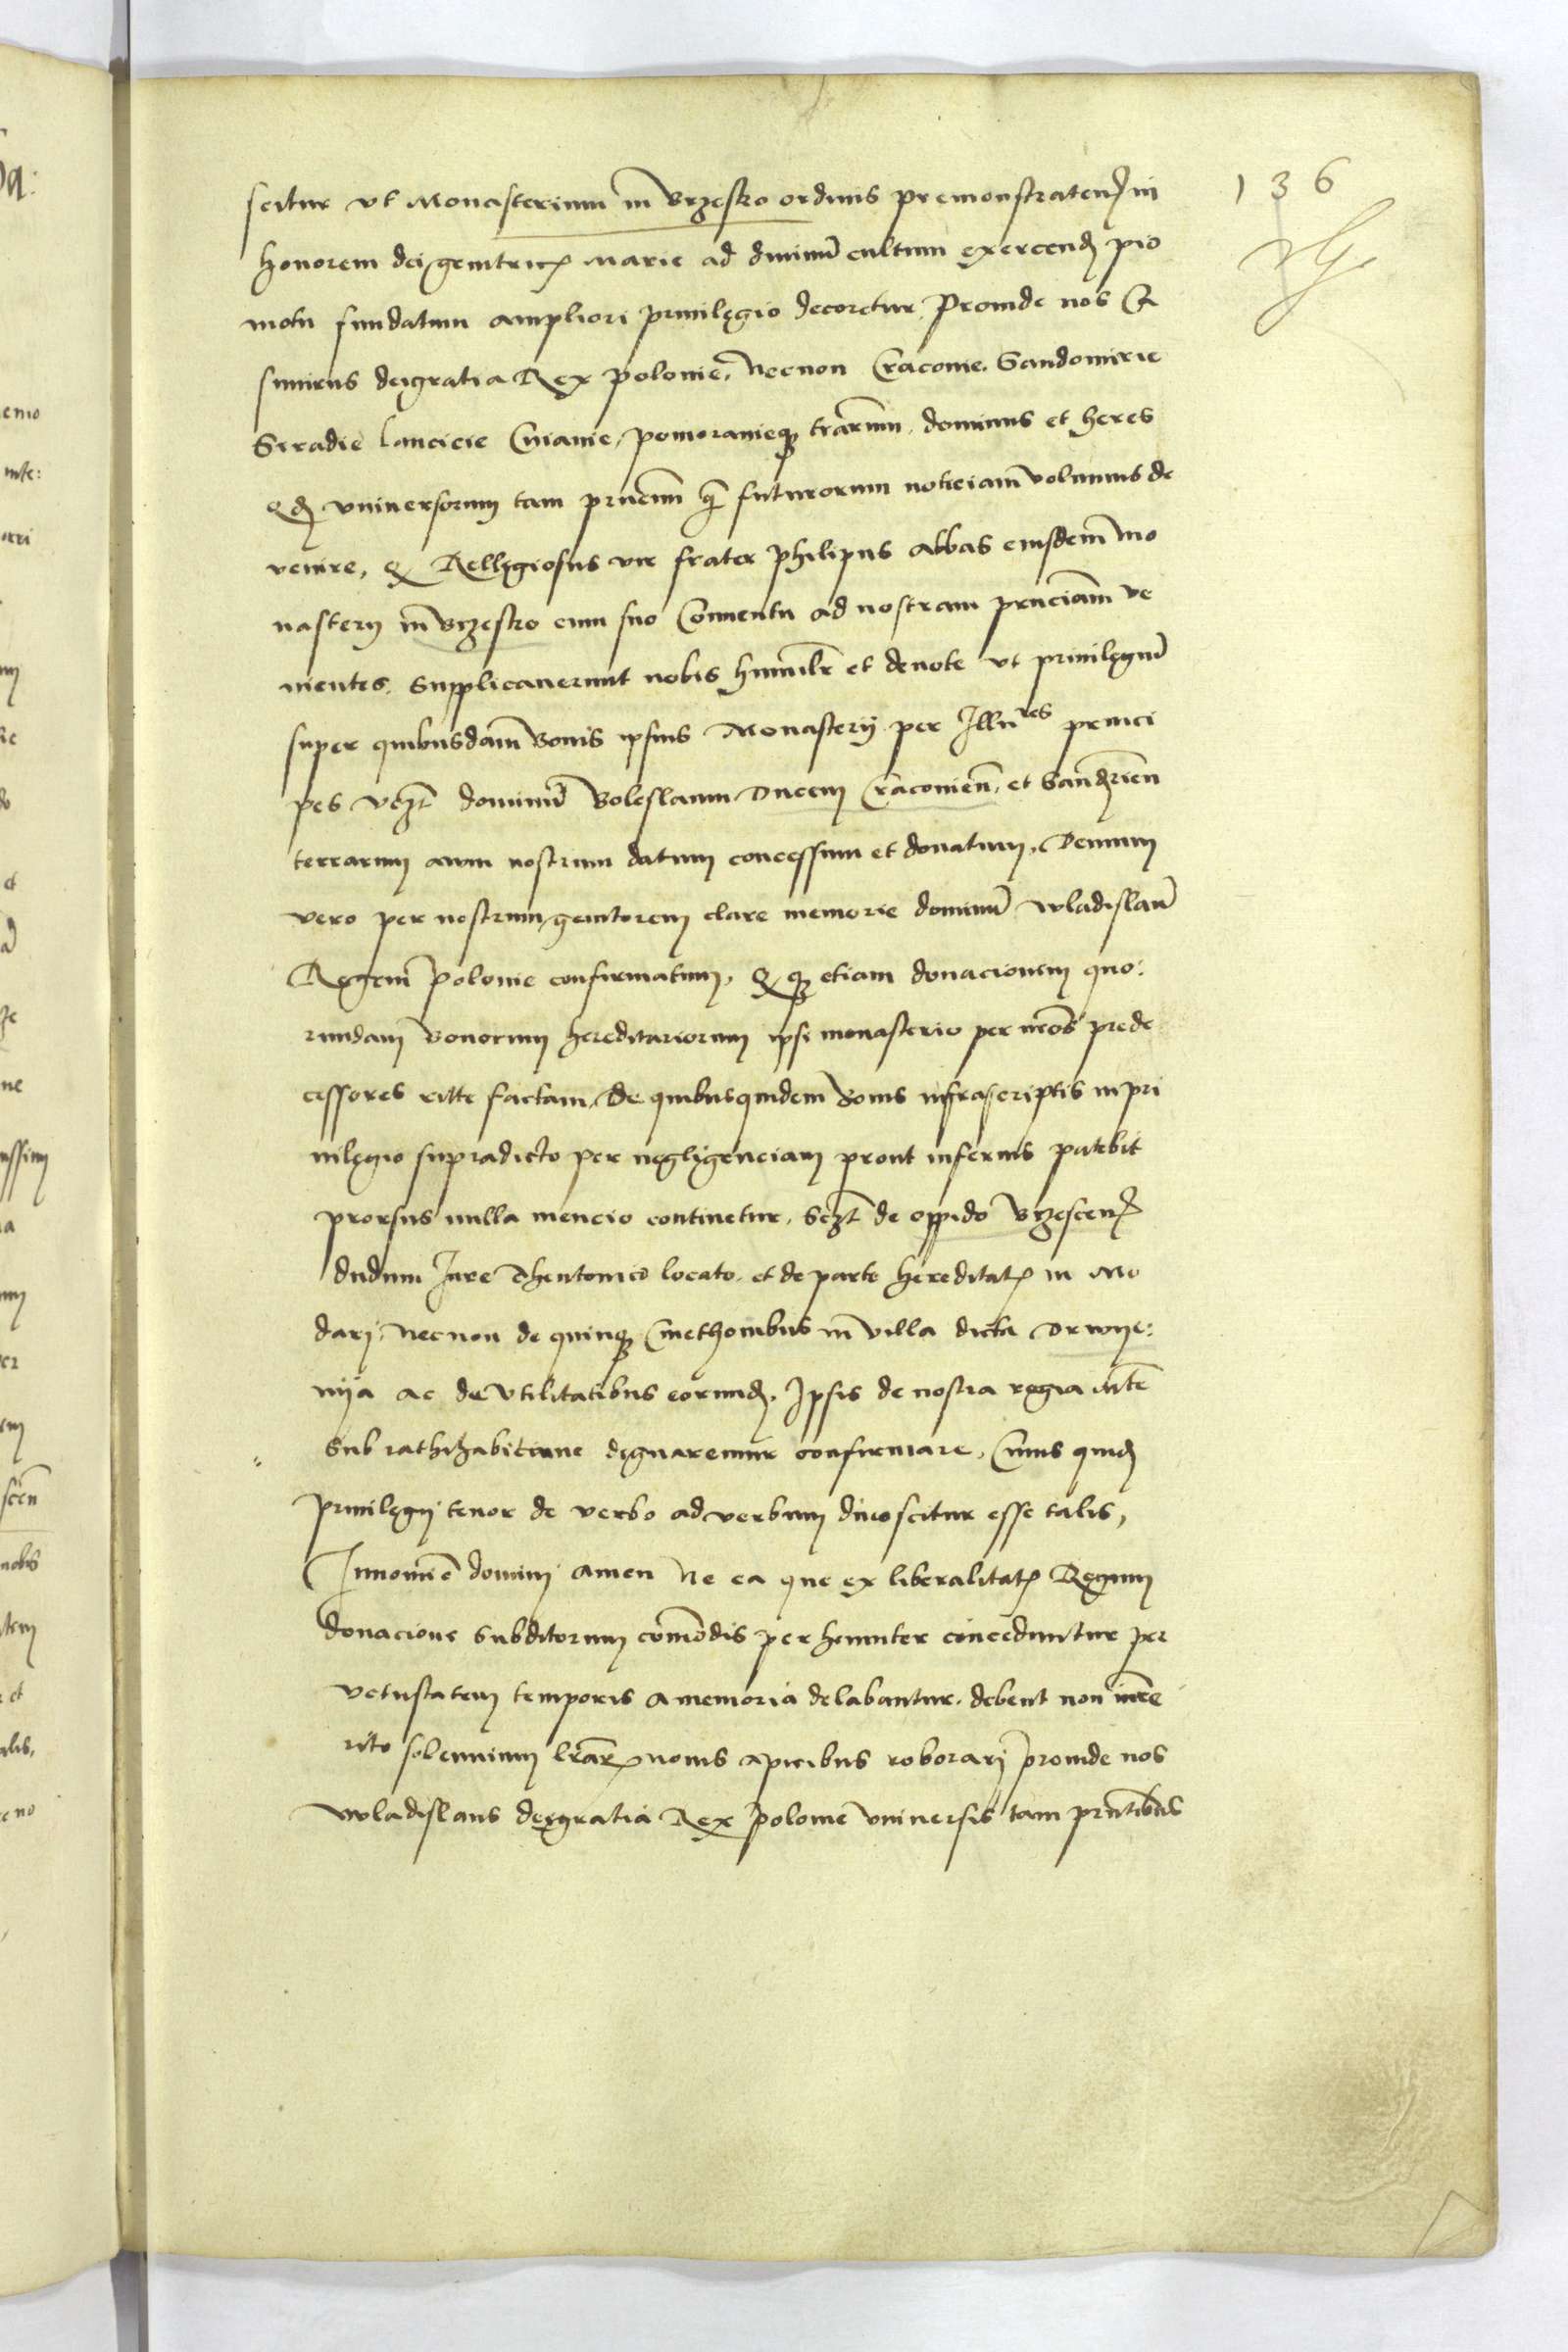 136
scitur vt Monasterium in Brzesko ordinis premonstraten in
honorem dei genitric Marie ad diuinũ cultum exercend pio
motu fundatum ampliori priuilegio decoretur Proinde nos Ca
simirus dei gratia Rex Polonie, Necnon Cracouie. Sandomirie
Siradie Lancicie Cuiauie, Pomoranieq trarum. dominus et heres
Ad vniuersorum tam pruẽm q̃ futurorum noticiam volumus de
venire, q Relligiosus vir frater Philipus Abbas eiusdem mo
nastery in Brzesko cum suo Conuentu ad nostram prnciam ve
nientes. Supplicauerunt nobis humilr̃ et deuote vt priuilegiũ
super quibusdam Bonis ipsius Monasterij per Illu res princi
pes vczt dominũ Boleslaum Ducem Cracouien̄. et Sandzien
terrarum auum nostrum datum concessum et donatum. Demum
vero per nostrum genitorem clare memorie dominũ Wladislaũ
Regem Polonie confirmatum, q q etiam donacionem quo:
rundam Bonorum hereditariorum ipsi monasterio per nr̃os prede
cessores ritte factam, De quibusquidem Bonis infrascriptis in pri
uilegio supradicto per negligenciam prout inferius patebit
prorsus nulla mencio continetur, Sczt de oppido Brzescen
dudum Jure Theutonico locato. et de parte hereditat in Mo
darj. Necnon de quinq Cmethonibus in villa dicta Drwye:
nija ac de vtilitatibus eorund. Ipsis de nostra regia
Sub rathihabicione dignaremur confirmare, Cuius quid
priuilegij tenor de verbo ad verbum dinoscitur esse talis,
In nomĩe dominj Amen Ne ea que ex liberalitat Regum
donacione Subditorum com̃odis perhenniter conceduntur per
vetustatem temporis a memoria delabantur. debent non im̃e
rito solennium lrar nouis apicibus roborarj proinde nos
Wladislaus dei gratia Rex Polonie vniuersis tam prñtibus